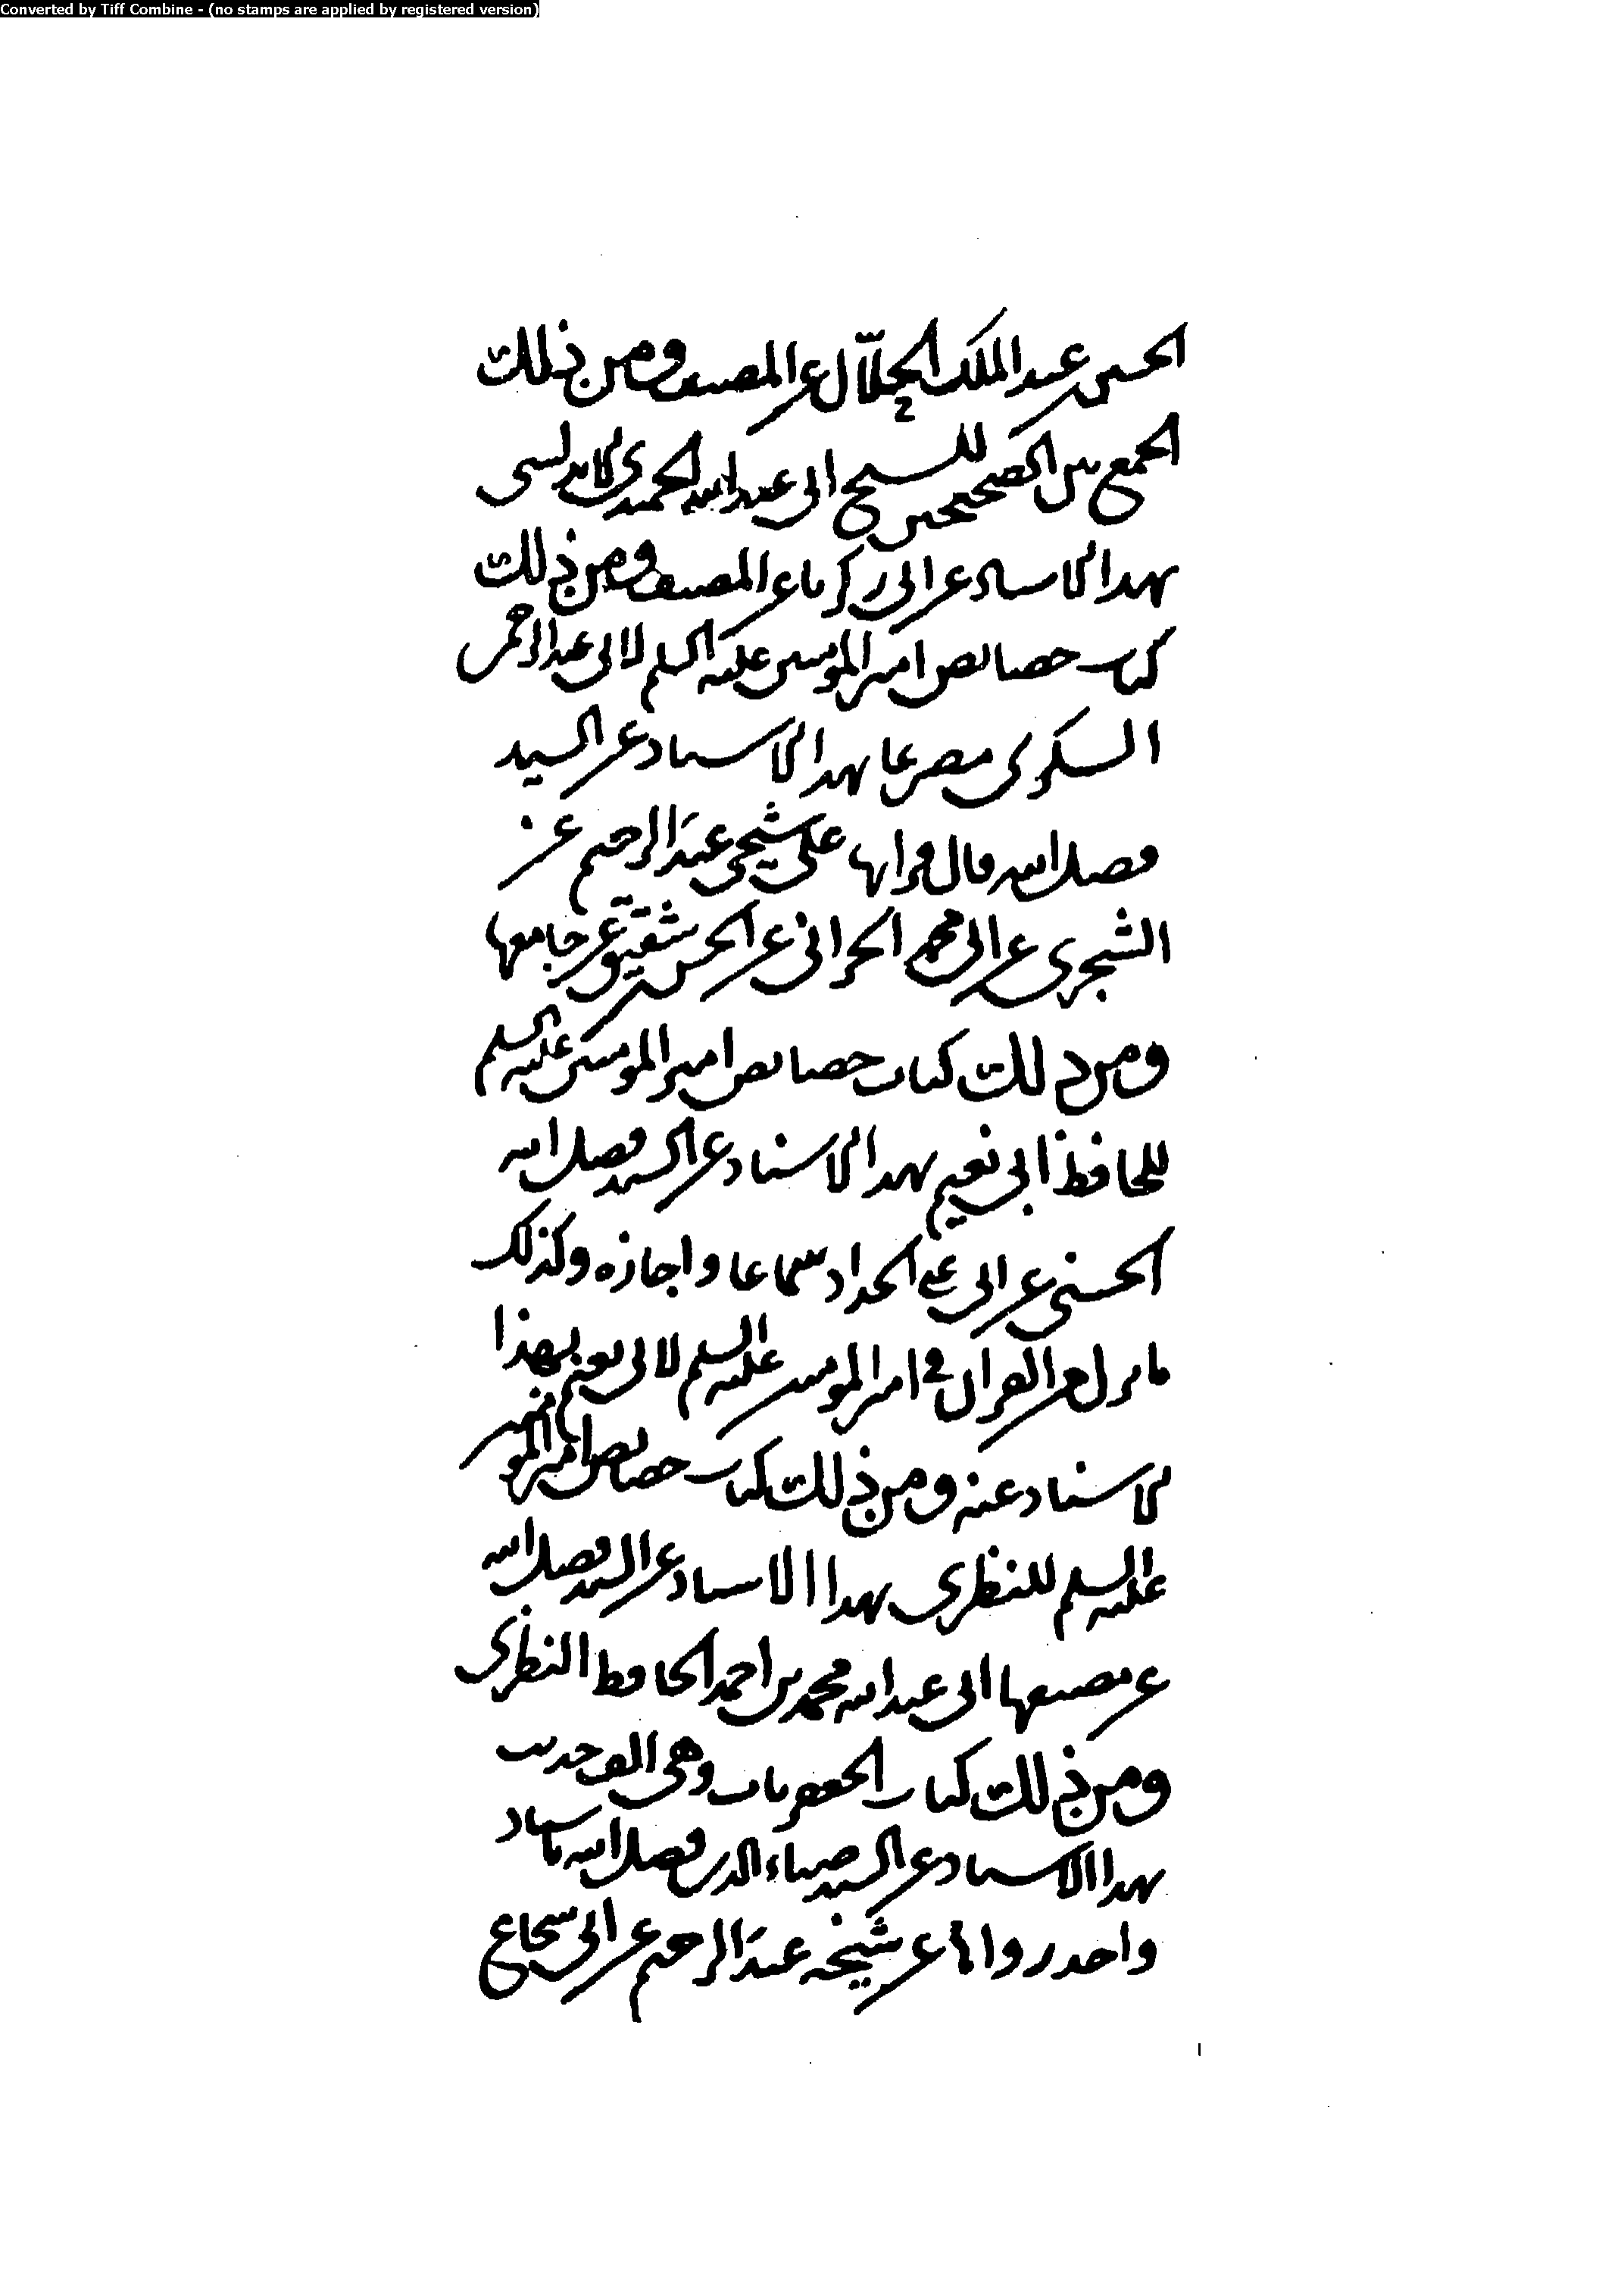 Converted by Tiff Combine - (no stamps are applied by registered version)
الحسين عبد الملك الخلّال عن المصنف ومن ذلك
الجمع بين الصحيحين للشيخ ابى عبد الله الحميدى الاندلسى
بهدا الاسناد عن ابى زكريا عن المصنف ومن ذلك
كتاب خصايص امير المومنين عليه السلم لابى عبد الرحمن
السكرى بهدا الاسناد عن السيد
فضل الله قال قراتها على شيخى عبد الرحيم عن
الشجرى عن ابى محمد الحرانى عن الحسن شقيق عن جامعها
ومن ذلك كتاب خصايص امير المومنين عليه السلم
للحافظ ابى نعيم بهدا الاسناد عن السيد فضل الله
الحسنى عن ابى على الحداد سماعا واجازه وكذلك
ما نزل من القران فى امير المومنين عليه السلم لابى نعيم بهذا
الاسناد عنه ومن ذلك كتاب خصايص امير المومنين
عليه السلم للنطنزى بهدا الاسناد عن السيد فضل الله
عن مصنفها ابى عبد الله محمد بن احمد الحافظ النطنزى
ومن ذلك كتاب الجعفريات وهى الف حديث
بهدا الاسناد عن السيد ضياء الدين فضل الله باسناد
واحد رواها عن شيخه عبد الرحيم عن ابى شجاع